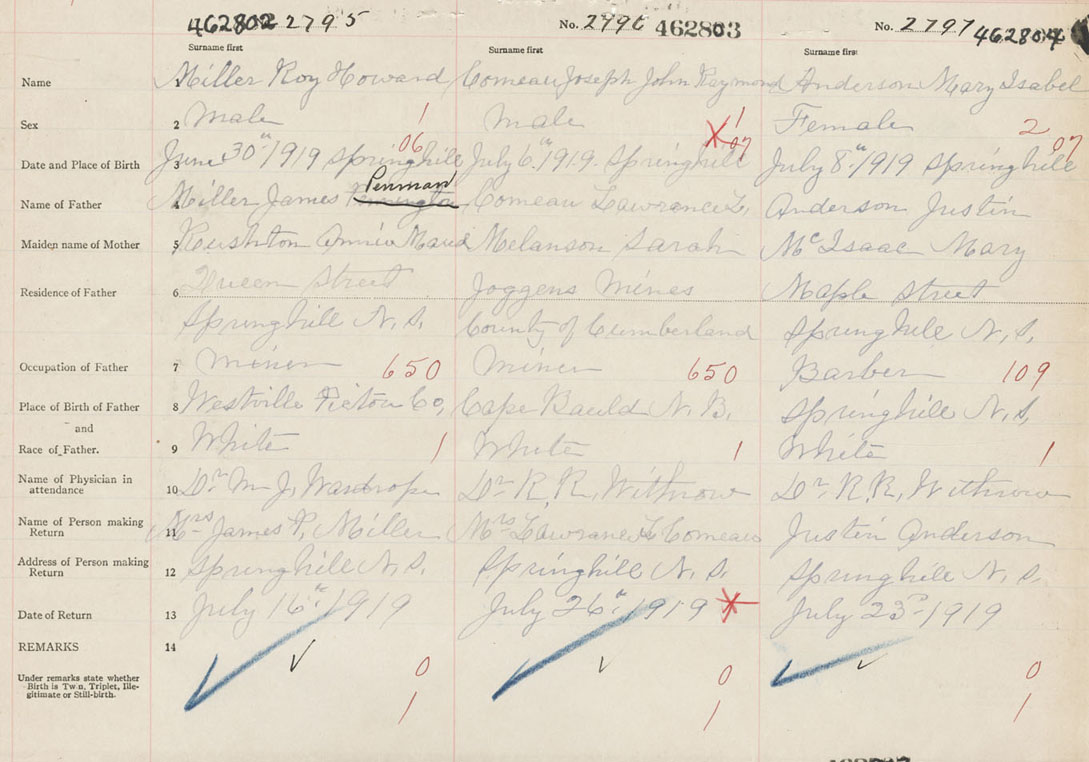 462802 2795 No. 2796 462803 No. 2797 462804
Surname first Surname first Surname first
Name Miller Roy Howard Comeau Joseph John Raymond Anderson Mary Isabel
Sex 2 Male 1 Male 1 Female 2
06 X 07 07
Date and Place of Birth 3 June 30th 1919 Springhill July 6th 1919. Springhill July 8th 1919 Springhill
Penman
Name of Father 4 Miller James Comeau Lawrance L. Anderson Justin
Maiden name of Mother 5 Rushton Annie Maud Melanson Sarah McIsaac Mary
Residence of Father 6 Queen Street Joggens Mines Maple Street
Springhill N.S. County of Cumberland Springhill N.S.
Occupation of Father 7 Miner 650 Miner 650 Barber 109
Place of Birth of Father 8 Westville Pictou Co, Cape Bauld N.B. Springhill N.S.
and
Race of Father. 9 White 1 White 1 White 1
Name of Physician in
attendance 10 Dr M J. Wardrope Dr R.R. Withrow Dr R.R. Withrow
Name of Person making
Return 11 Mrs James P. Miller Mrs Lawrance L Comeau Justin Anderson
Address of Person making
Return 12 Springhill N.S. Springhill N.S. Springhill N.S.
Date of Return 13 July 16th 1919 July 26th 1919 July 23rd 1919
REMARKS 14
Under remarks state whether
Birth is Twin, Triplet, Ille-
gitimate or Still-birth.
0 0 0
1 1 1